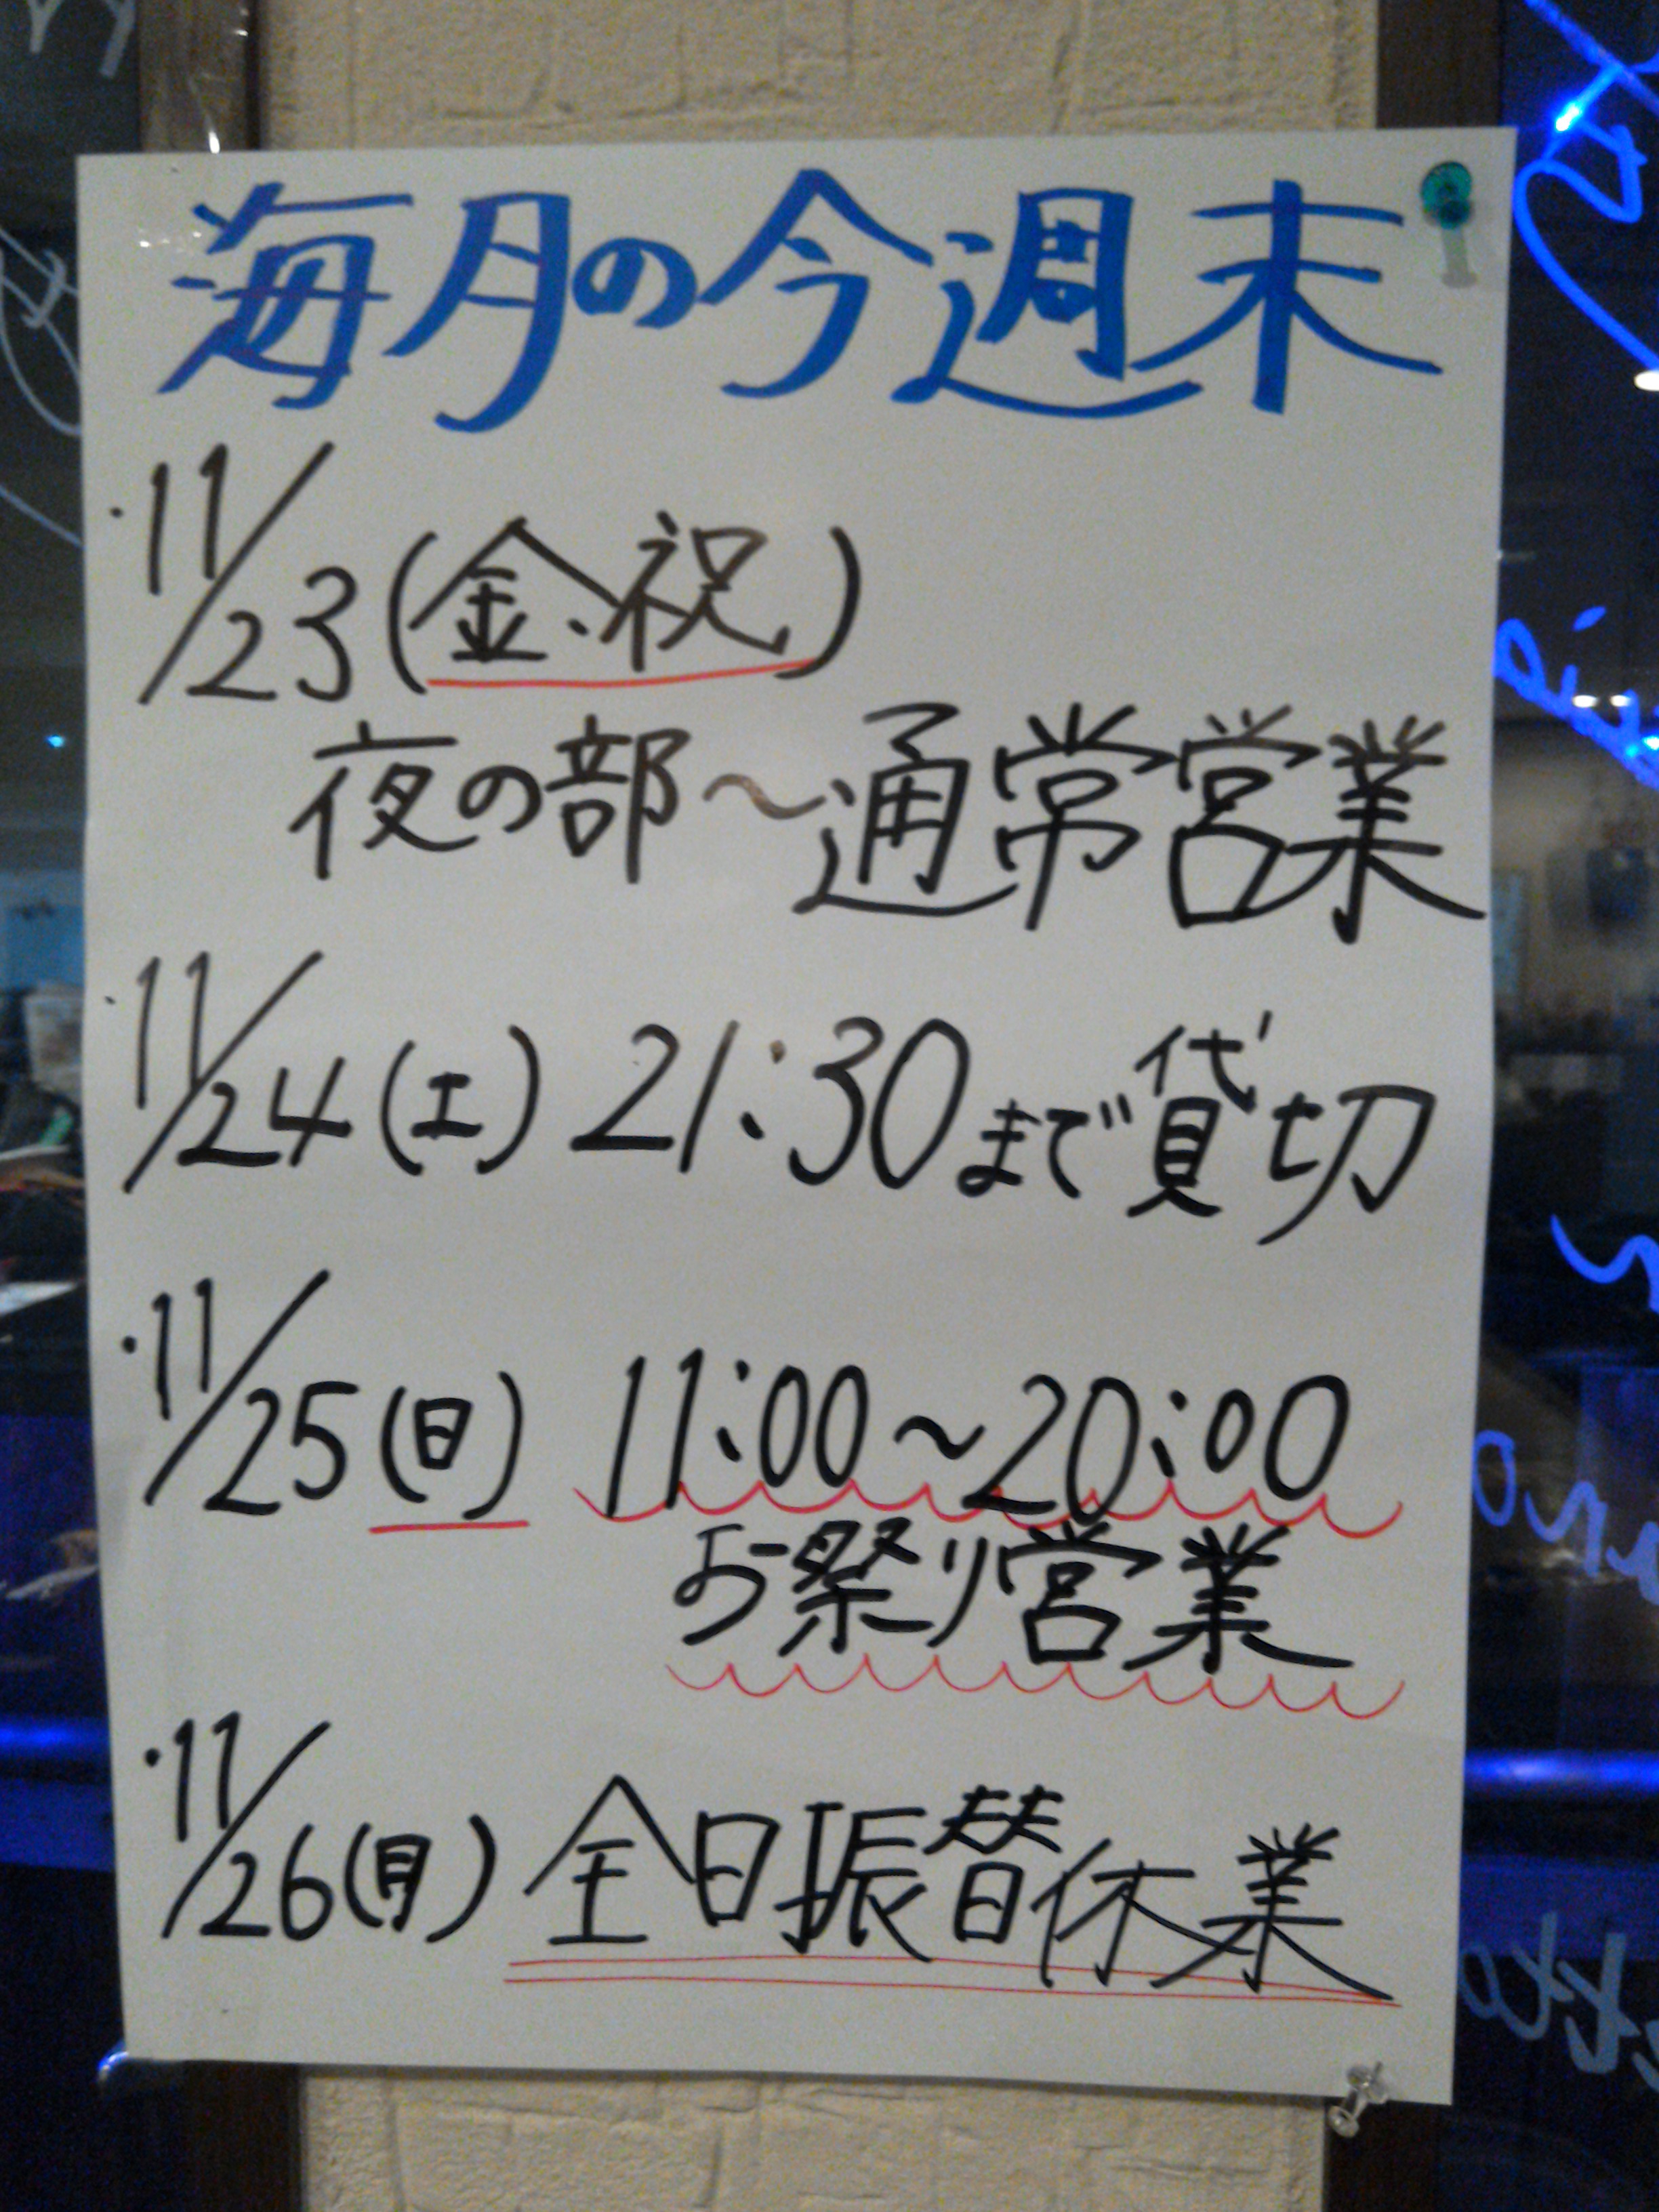 海月の今週末
・11/23(金、祝)
夜の部～通常営業
・11/24(土) 21:30まで貸切
・11/25(日) 11:00～20:00
お祭り営業
・11/26(月) 全日振替休業